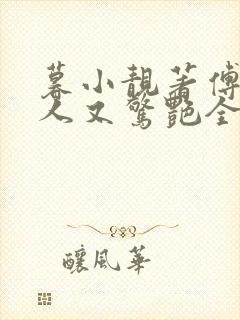 暮小靚苏傅
人又驚艷全
釀風華